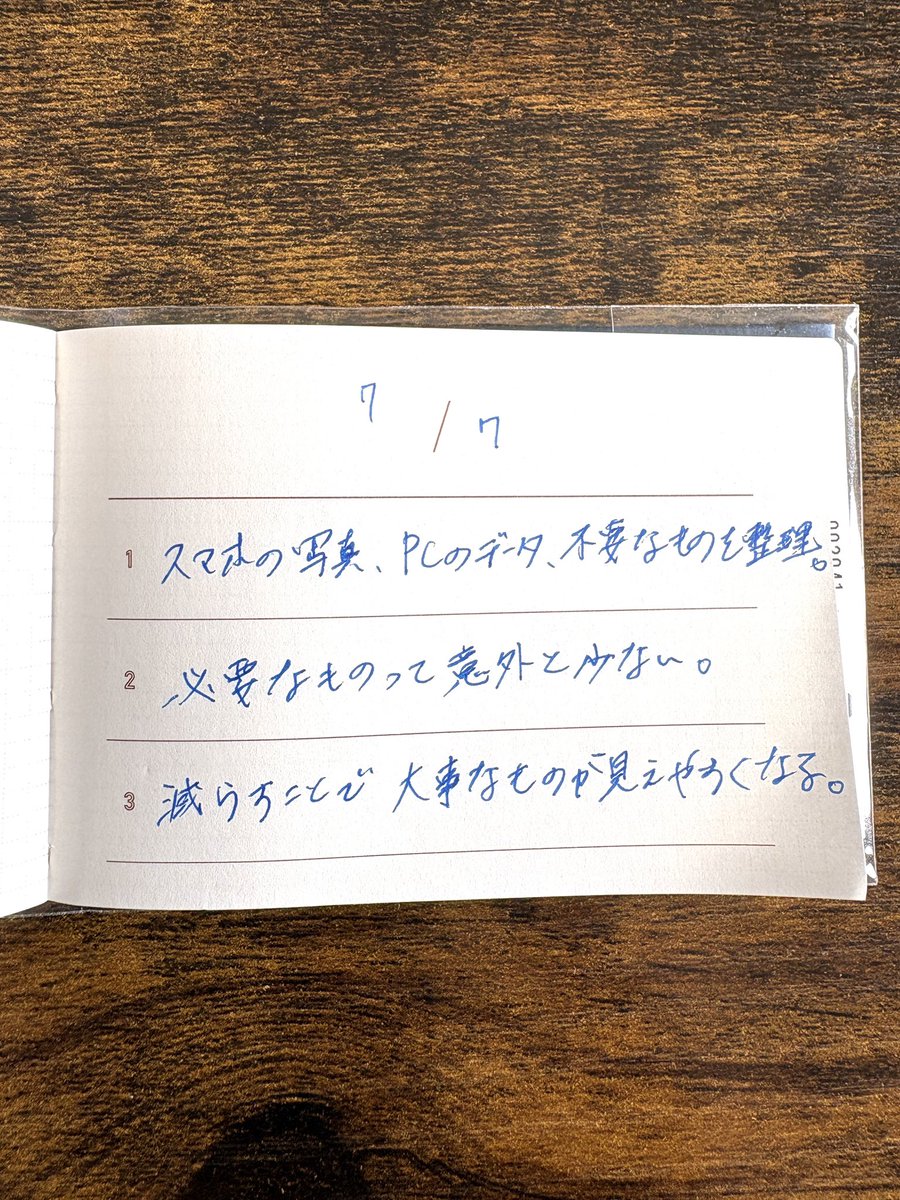 7 / 7
1 スマホの写真、PCのデータ、不要なものを整理。
2 必要なものって意外と少ない。
3 減らすことで大事なものが見えやすくなる。